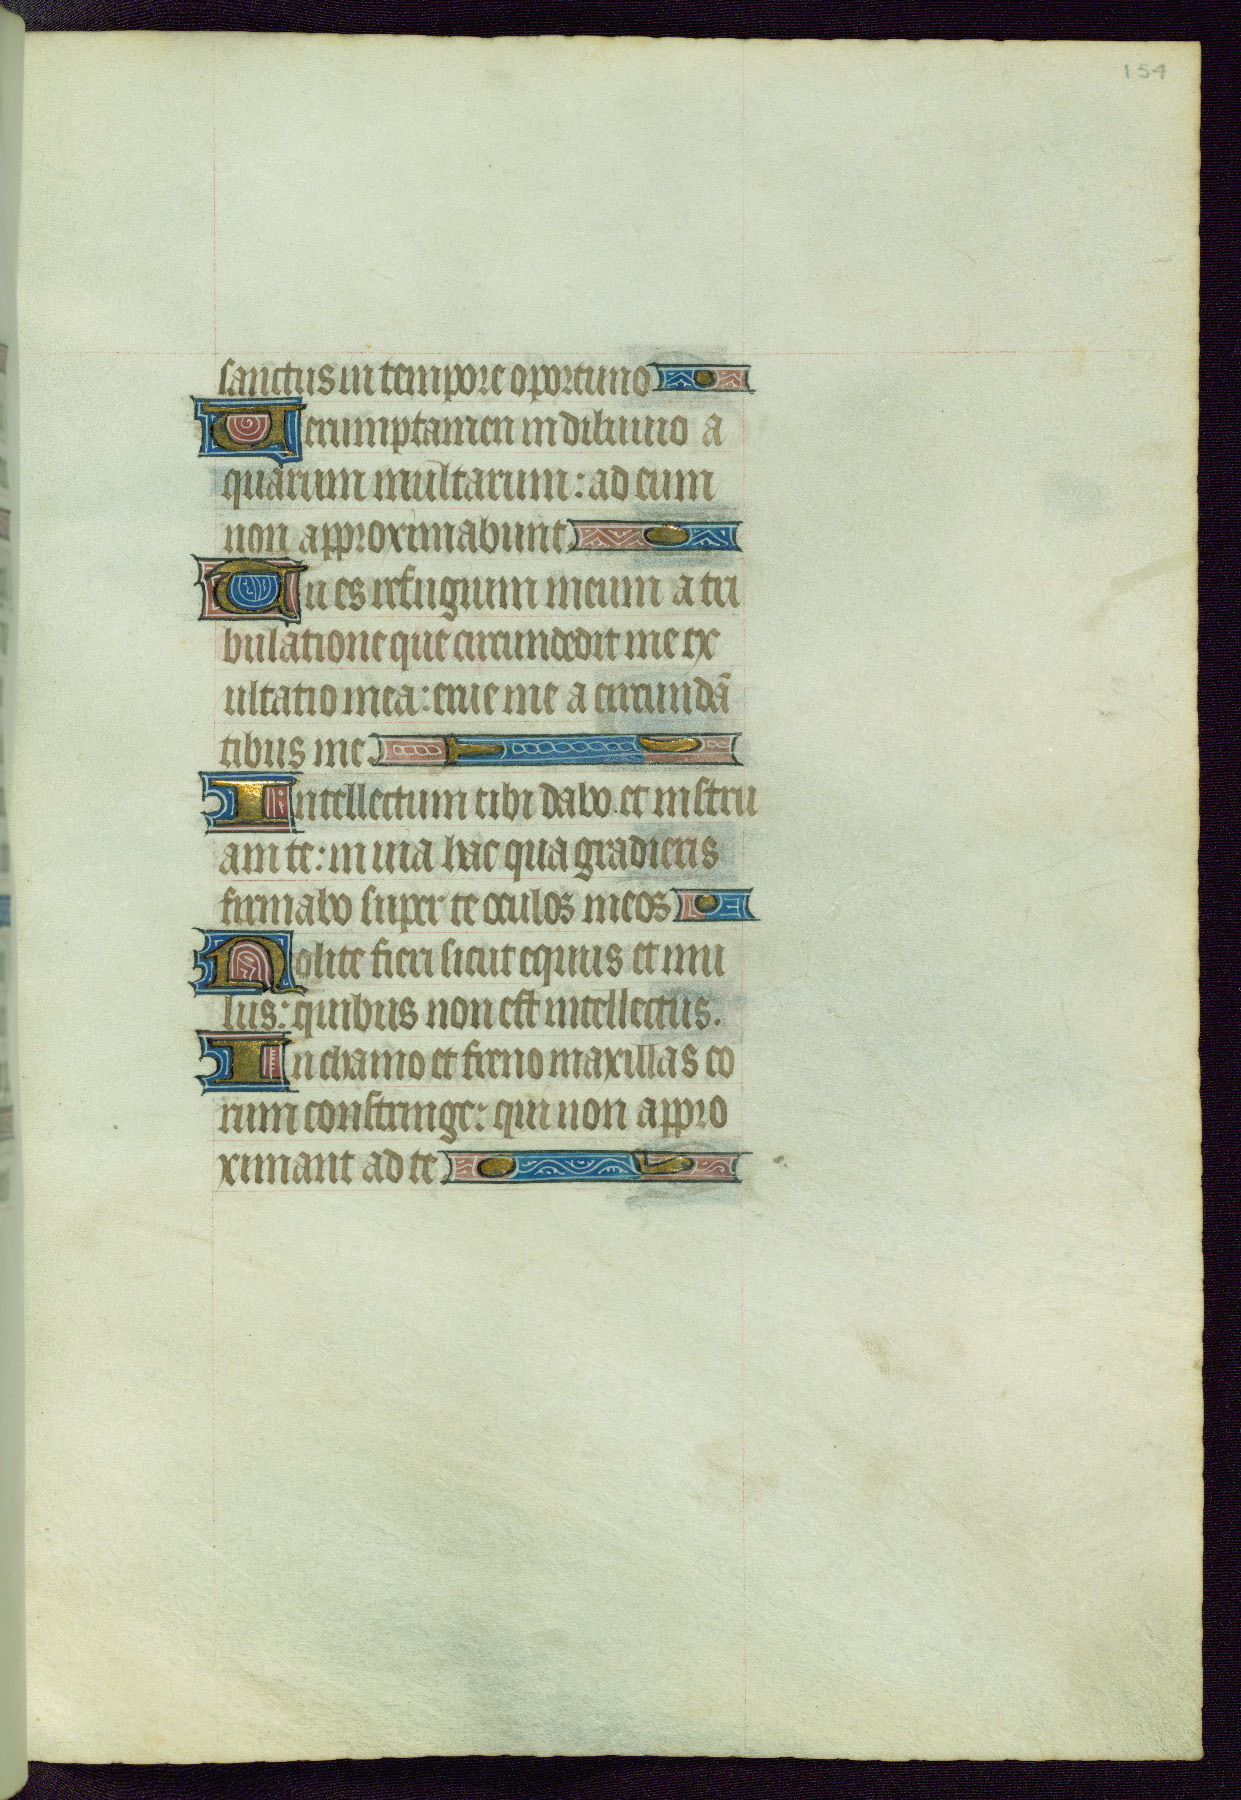 154
sanctus in tempore oportuno
Verumptamen in diluuio a
quarum multarum: ad eum
non approximabunt
Tu es refugium meum a tri
bulatione que circundedit me ex
ultatio mea: erue me a circundã
tibus me
Intellectum tibi dabo et instru
am te: in uia hac qua gradieris
firmabo super te oculos meos
Nolite fieri sicut equus et mu
lus: quibus non est intellectus.
In chamo et freno maxillas eo
rum constringe: qui non appro
ximant ad te